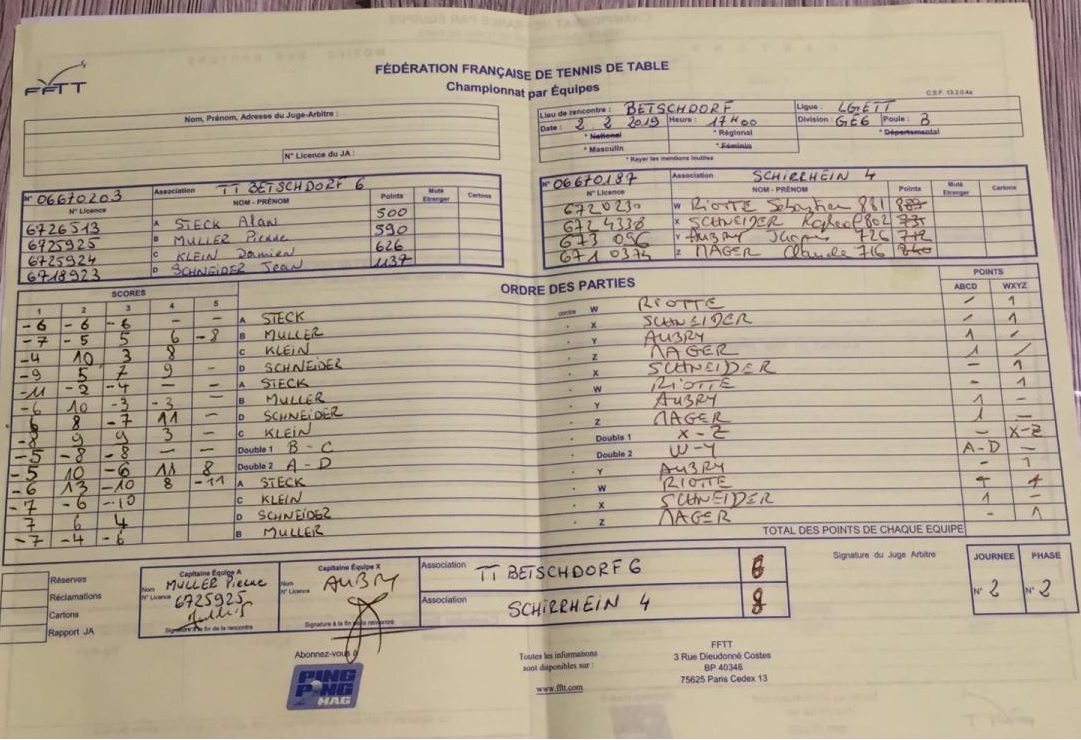 FFTT
FÉDÉRATION FRANÇAISE DE TENNIS DE TABLE
Championnat par Équipes
C.S.F. 13.2.0.4a
Nom, Prénom, Adresse du Juge-Arbitre :
N° Licence du JA :
Lieu de rencontre : BETSCHDORF Ligue : LGETT
Date : 2 2 2019 Heure : 17H00 Division : GE6 Poule : B
* National * Régional * Départemental
* Masculin * Féminin
* Rayer les mentions inutiles
N° 06670203 Association TT BETSCHDORF 6
N° Licence NOM - PRÉNOM Points Muté Etranger Cartons
6726513 A STECK Alan 500
6725925 B MULLER Pierre 590
6725924 C KLEIN Damien 626
6718923 D SCHNEIDER Jean 1137
N° 06670187 Association SCHIRRHEIN 4
N° Licence NOM - PRÉNOM Points Muté Etranger Cartons
6720230 W RIOTTE Sébastien 881
6724338 X SCHNEIDER 802
673 096 Y AUBRY 726
671 0374 Z NAGER Claude 716
SCORES ORDRE DES PARTIES POINTS
1 2 3 4 5 ABCD WXYZ
-6 -6 -6 - - A STECK contre W RIOTTE - 1
-7 -5 5 6 -8 B MULLER X SCHNEIDER - 1
-4 10 3 8 C KLEIN Y AUBRY 1 -
-9 5 7 9 - D SCHNEIDER Z NAGER 1 -
-11 -2 -4 - - A STECK X SCHNEIDER - 1
-6 10 -3 -3 - B MULLER W RIOTTE - 1
6 8 -7 11 - D SCHNEIDER Y AUBRY 1 -
-8 9 9 3 - C KLEIN Z NAGER 1 -
-5 -8 -8 - - Double 1 B - C Double 1 X-Z - X-Z
-5 10 -6 11 8 Double 2 A - D Double 2 W-Y A-D -
-6 13 -10 8 -11 A STECK Y AUBRY - 1
-7 -6 -10 C KLEIN W RIOTTE
7 6 4 D SCHNEIDER X SCHNEIDER 1 -
-7 -4 -6 B MULLER Z NAGER - 1
TOTAL DES POINTS DE CHAQUE EQUIPE
Réserves
Réclamations
Cartons
Rapport JA
Capitaine Équipe A
Nom MULLER Pierre
N° Licence 6725925
Signature à la fin de la rencontre
Capitaine Équipe X
Nom AUBRY
N° Licence
Signature à la fin de la rencontre
Association TT BETSCHDORF 6 6
Association SCHIRRHEIN 4 8
Signature du Juge Arbitre
JOURNEE PHASE
N° 2 N° 2
Abonnez-vous à
PING PONG MAG
Toutes les informations
sont disponibles sur :
www.fftt.com
FFTT
3 Rue Dieudonné Costes
BP 40348
75625 Paris Cedex 13